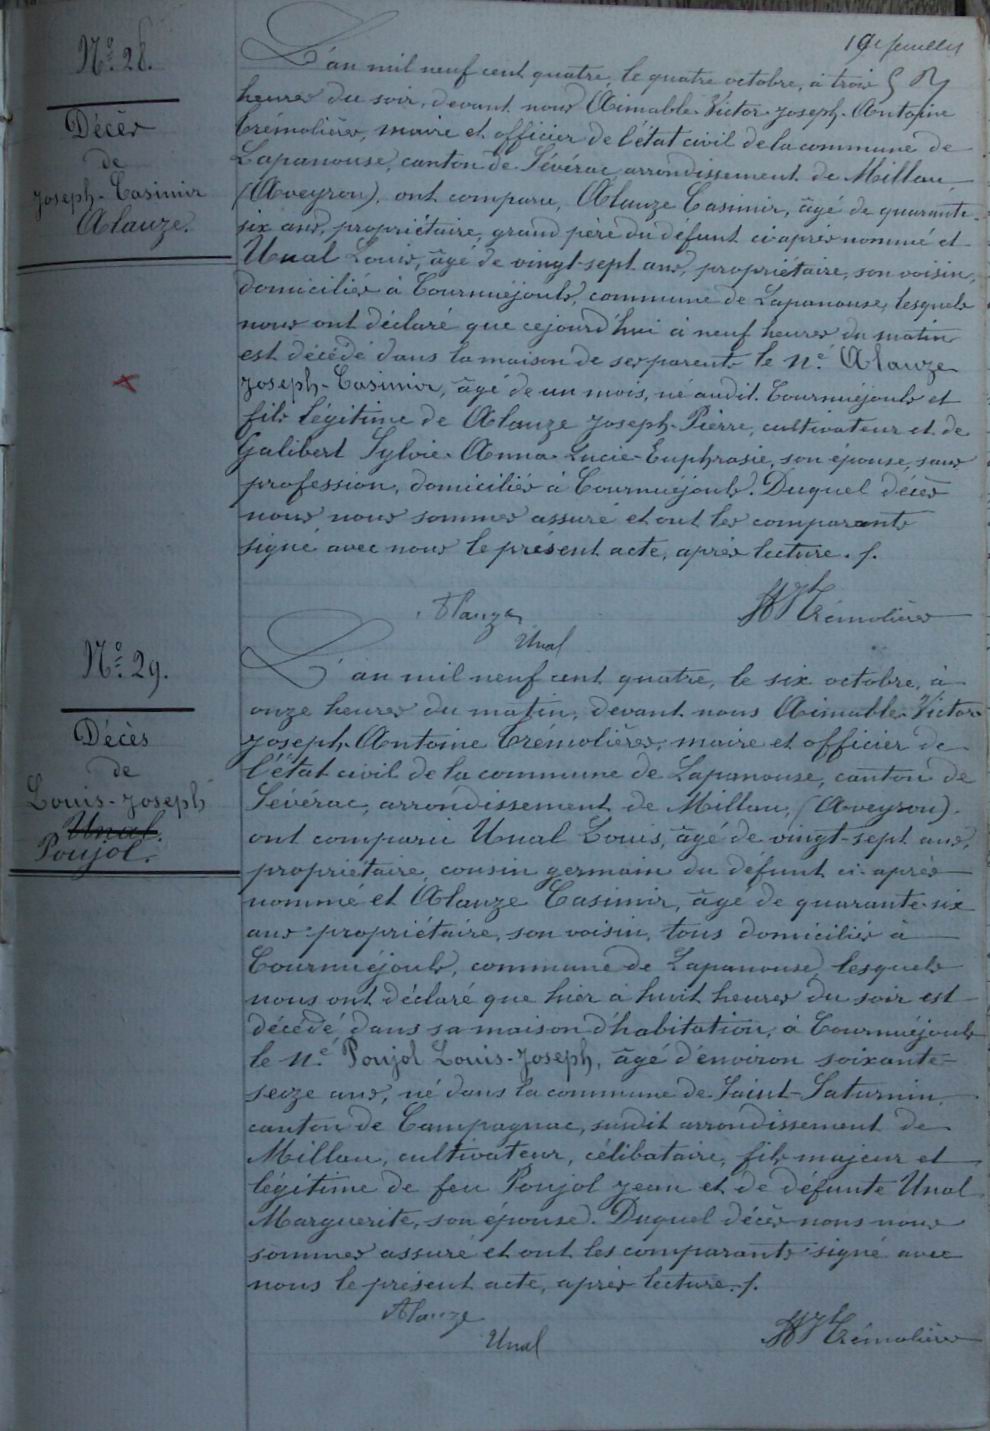 19e feuillet
N° 28.
Décès
de
Joseph-Casimir
Alauze.
L'an mil neuf cent quatre, le quatre octobre, à trois
heures du soir, devant nous Aimable Victor Joseph Antoine
Trémolières, maire et officier de l'état civil de la commune de
Lapanouse, canton de Sévérac, arrondissement de Millau
(Aveyron), ont comparu, Alauze Casimir, âgé de quarante-
six ans, propriétaire, grand père du défunt ci-après nommé et
Unal Louis, âgé de vingt-sept ans, propriétaire, son voisin,
domiciliés à Tournuéjouls, commune de Lapanouse, lesquels
nous ont déclaré que cejourd'hui à neuf heures du matin
est décédé dans la maison de ses parents le né Alauze
Joseph-Casimir, âgé de un mois, né audit Tournuéjouls et
fils légitime de Alauze Joseph-Pierre, cultivateur et de
Galibert Sylvie-Anna-Lucie-Euphrasie, son épouse, sans
profession, domiciliés à Tournuéjouls. Duquel décès
nous nous sommes assuré et ont les comparants
signé avec nous le présent acte, après lecture. /.
Alauze
Unal
Trémolières
N° 29.
Décès
de
Louis-Joseph
Unal
Poujol.
L'an mil neuf cent quatre, le six octobre, à
onze heures du matin, devant nous Aimable-Victor
Joseph-Antoine Trémolières, maire et officier de
l'état civil de la commune de Lapanouse, canton de
Sévérac, arrondissement de Millau, (Aveyron).
ont comparu Unal Louis, âgé de vingt-sept ans,
propriétaire, cousin germain du défunt ci-après
nommé et Alauze Casimir, âgé de quarante-six
ans propriétaire, son voisin, tous domiciliés à
Tournuéjouls, commune de Lapanouse, lesquels
nous ont déclaré que hier à huit heures du soir est
décédé dans sa maison d'habitation, à Tournuéjouls
le né Poujol Louis-Joseph, âgé d'environ soixante-
seize ans, né dans la commune de Saint-Saturnin
canton de Campagnac, susdit arrondissement de
Millau, cultivateur, célibataire, fils majeur et
légitime de feu Poujol Jean et de défunte Unal
Marguerite, son épouse. Duquel décès nous nous
sommes assuré et ont les comparants signé avec
nous le présent acte, après lecture. /.
Alauze
Unal
Trémolières